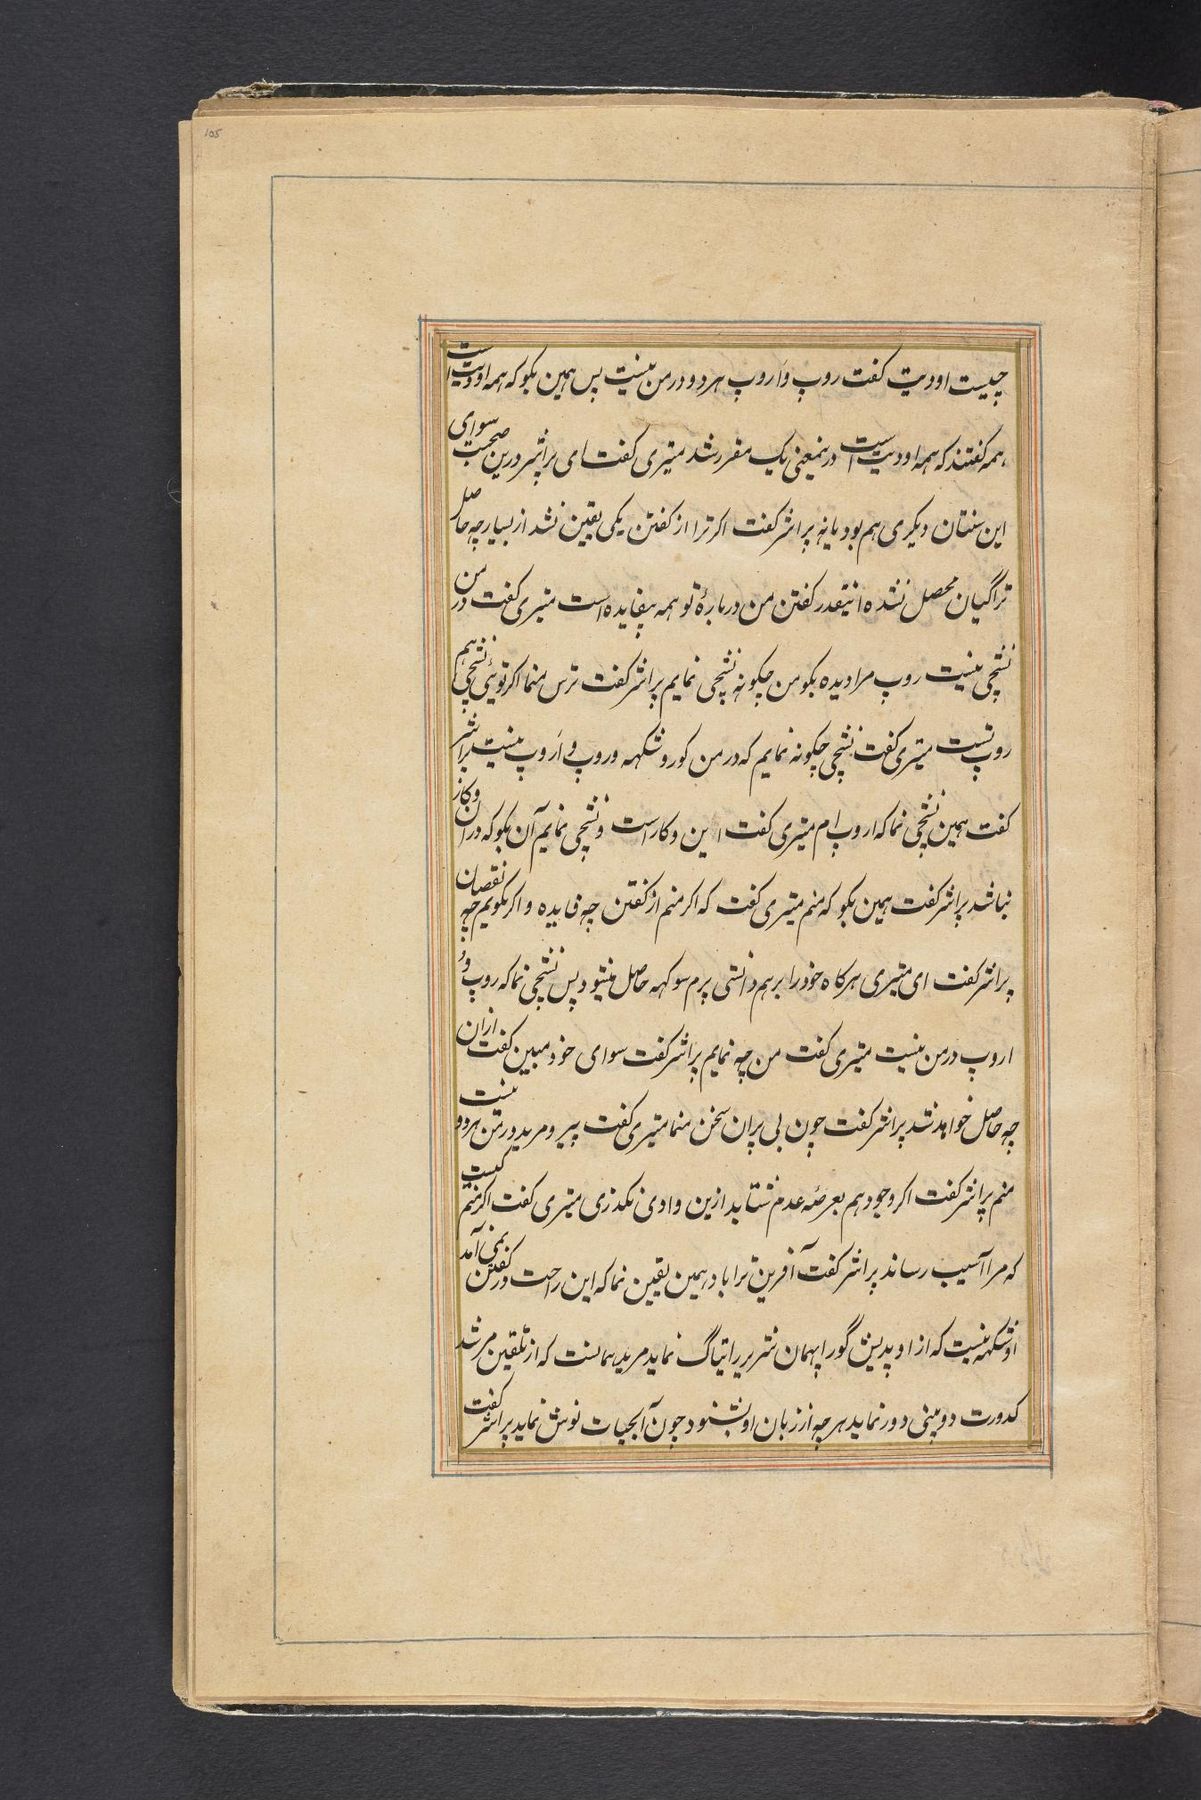 105
چیست اودیت کفت روپ واروپ هردو درمن نیست پس همین بکو که همه اودیت است
همه کفتند که همه اودیت است درینمعنی یک مقرر شد متیری کفت ای پراشر درین صحبت سوای
این سنتان دیکری هم بود یا نه پراشر کفت اکر ترا از کفتن یکی یقین نشد از بسیار چه حاصل
ترا گیان محصل نشده اینقدر کفتن من دربارهٔ تو همه بیفایده است متیری کفت در من
نشچی نیست روپ مرا دیده بکو من چکونه نشچی نمایم پراشر کفت ترس منما اکر توئی نشچی هم
روپ تست متیری کفت نشچی چکونه نمایم که در من کور و شکهه و روپ و اروپ نیست پراشر
کفت همین نشچی نما که اروپ ام متیری کفت این وکار است و نشچی نمایم آن بکو که دران وکار
نباشد پراشر کفت همین بکو که منم متیری کفت که اکر منم از کفتن چه فایده و اکر نکویم چه نقصان
پراشر کفت ای متیری هرکاه خود را برهم دانستی پرم سوکهه حاصل میشود پس نشچی نما که روپ و
اروپ درمن نیست متیری کفت من چه نمایم پراشر کفت سوای خود مبین کفت ازان
چه حاصل خواهد شد پراشر کفت چون بی پران سخن منما متیری کفت پیر و مرید درمن هردو نیست
منم پراشر کفت اکر وجود هم بعرصه عدم شتابد ازین وادی نکذری متیری کفت اکر منم کیست
که مرا آسیب رساند پراشر کفت آفرین ترا باد همین یقین نما که این راحت در کفتن نمی آمد
او شکهه نیست که از اوپدیش گور ابهمان شریر را تیاگ نماید مرید همانست که از تلقین مرشد
کدورت دوبینی دور نماید هرچه از زبان او بشنود چون آبحیات نوش نماید پراشر کفت